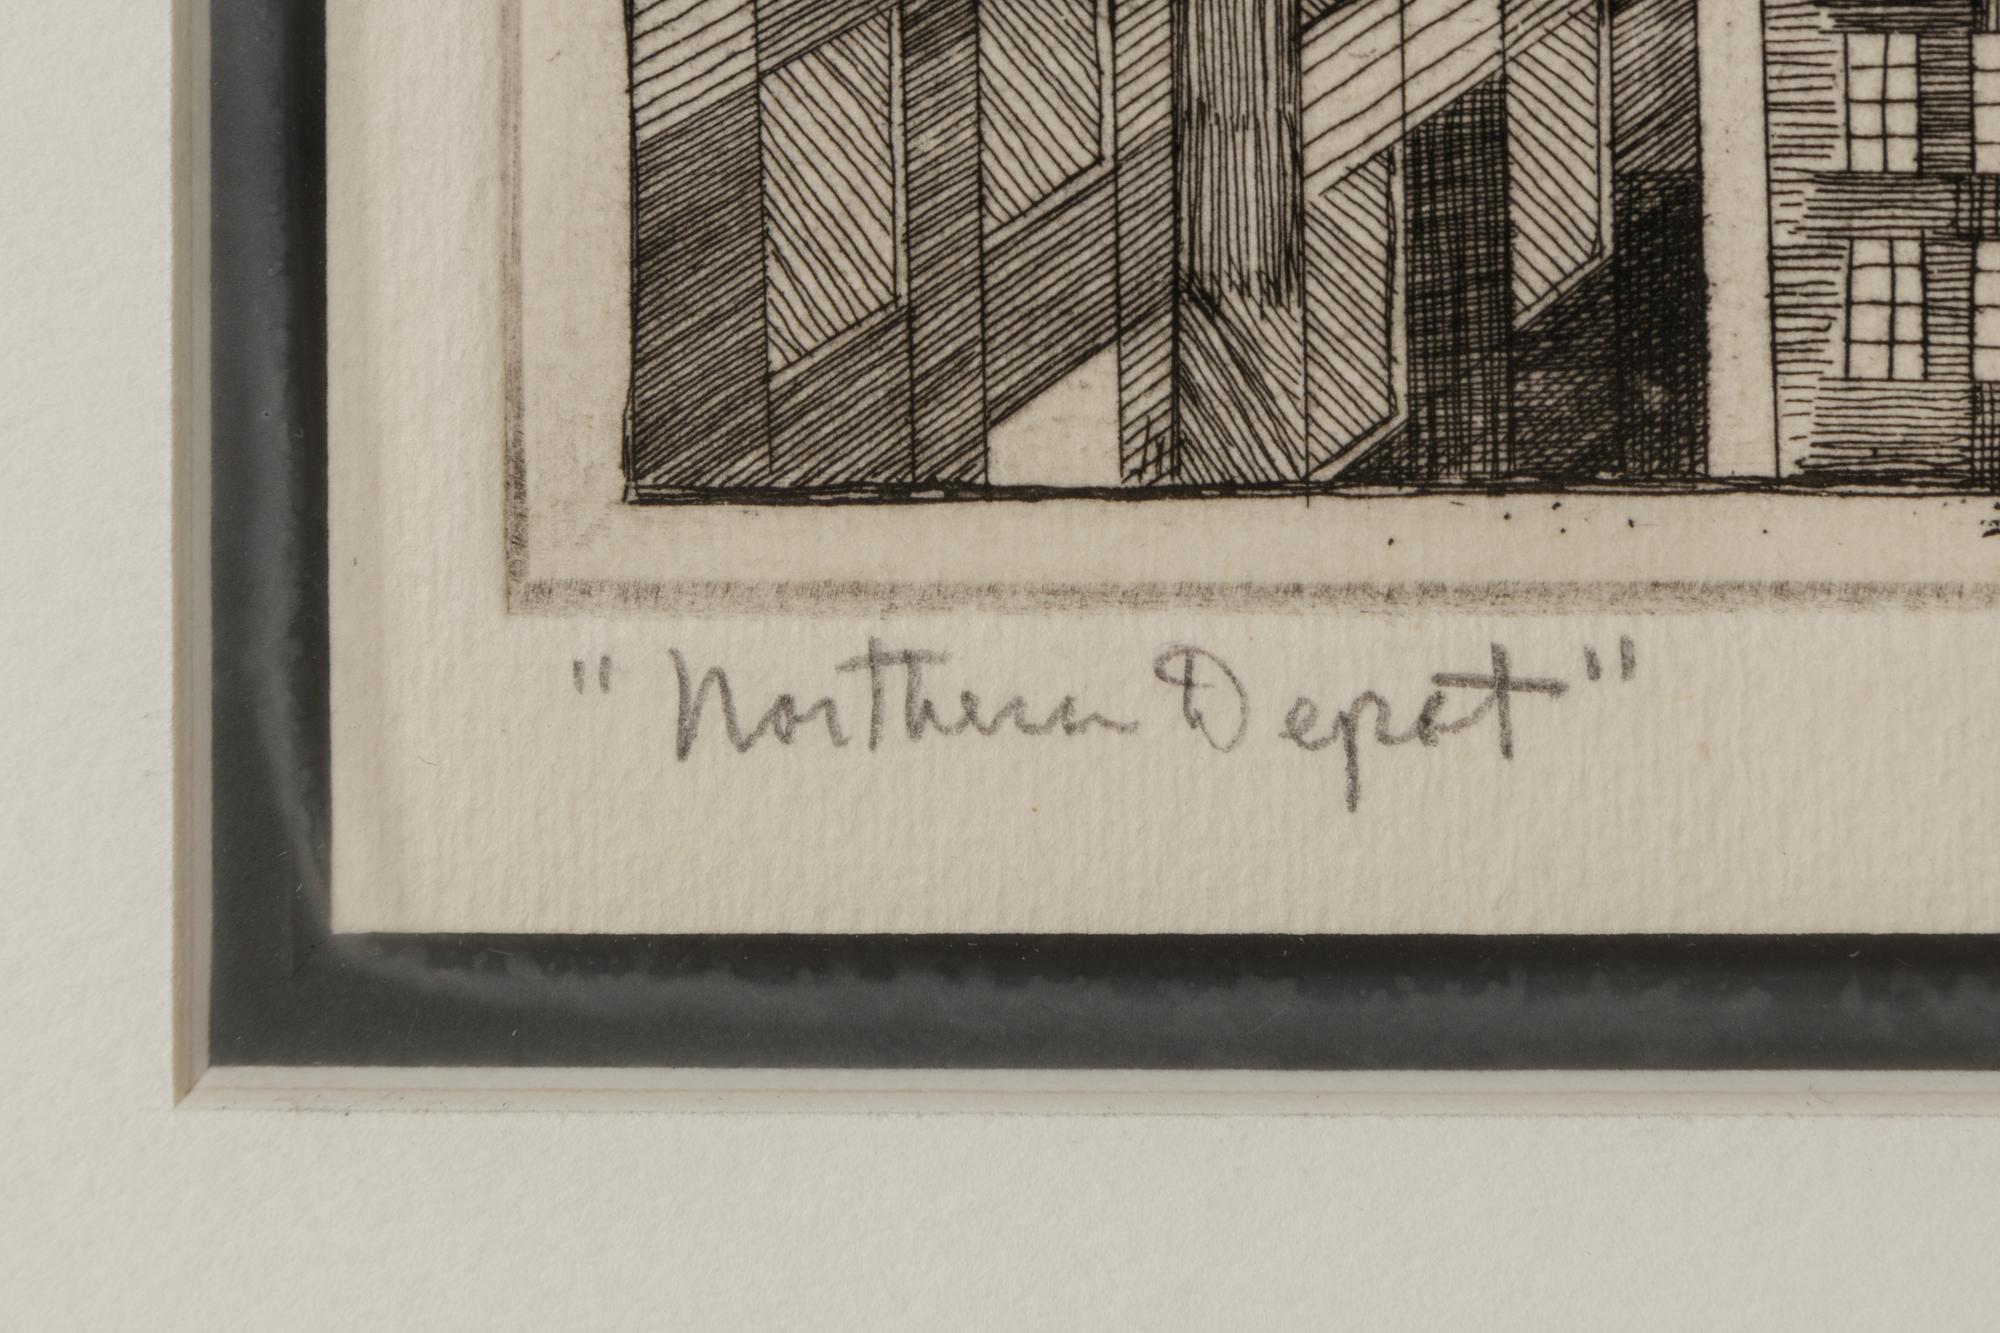 "Northern Depot"